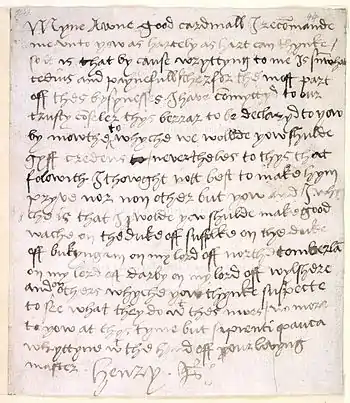 Myne Awne good cardinall I recomande
me unto yow as hartely as hart can thynke
so it is that by cause wryttyng to me is sumwhat
tedius and paynefull therfor the most part
off thes bysynesses I have comyttyd to our
trusty counseler thys berrar to be declaryd to yow
by mowthe to whyche we wollde yow shulde
gyff credens neverthelesse to thys that
folowith I thowght nott best to make hym
pryve nor non other but yow and I whyche
is that I wolde yow shulde make good
wache on the duke off suffolke on the duke
off bukyngam on my lord off northe omberland
on my lord off darby on my lord off wylshere
and on others whyche yow thynke suspecte
to see what they do with thes news no more
to yow at thys tyme but sapienti pauca
wryttyne with the hand off your lovyng
master Henry R